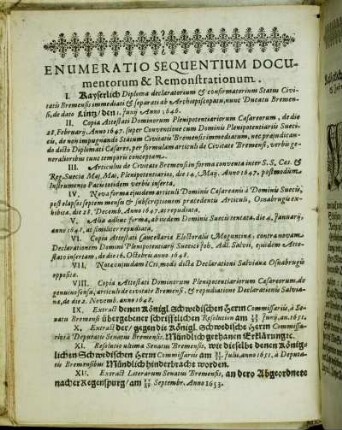 ENUMERATIO SEQUENTIUM DOCU-
mentorum & Remonstrationum.
I. Kayserlich Diploma declaratorium & confirmatorium Status Civi-
tatis Bremensis immediati & separati ab Archiepiscopatu, nunc Ducatu Bremen-
si, de dato Lintz / den 1. Junij Anno 1646.
II. Copia Attestati Dominorum Plenipotentiariorum Cæsareorum, de die
28. Februarij, Anno 1647. super Conventione cum Dominis Plenipotentiariis Sueci-
cis, de non impugnando Statum Civitatis Bremensis immediatum, nec præjudican-
do dicto Diplomati Cæsareo, per formulam articuli de Civitate Bremensi, verbis ge-
neralioribus tunc temporis conceptam.
III. Articulus de Civitate Bremensi in forma conventa inter S. S. Cæs. &
Reg. Sueciæ Maj. Maj. Plenipotentiarios, die Maj. Anno 1647. postmodum
Instrumento Pacis totidem verbis inserta.
IV. Nova forma ejusdem articuli Dominis Cæsareanis à Dominis Suecis,
post elapsos septem menses & subscriptionem præcedentis Articuli, Osnabrugis ex-
hibita, die 28. Decemb. Anno 1647. at repudiata.
V. Alia adhuc forma, ab iisdem Dominis Suecis tentata, die 4. Januarij,
anno 1648. at similiter repudiata.
VI. Copia Attestati Cancellariæ Electoralis Moguntinæ, contra novam
Declarationem Domini Plenipotentiarij Suecici Joh. Adl. Salvii, ejusdem Atte-
stato insertam, de die 16. Octobris anno 1648.
VII. Notæ cujusdam ICti, modo dictæ Declarationi Salvianæ Osnabrugis
oppositæ.
VIII. Copia Attestati Dominorum Plenipotentiariorum Cæsareorum, de
genuino sensu, articuli de civitate Bremensi. & repudiatione Declarationis Salvia-
næ, de die 2. Novemb. anno 1648.
IX. Extract denen Königl. Schwedischen Herrn Commissariis, à Se-
natu Bremensi übergebener schrifftlichen Resolution am Junij, an. 1651.
X. Extract der / gegen die Königl. Schwedische Herrn Commissa-
rios à Deputatis Senatus Bremensis. Mündlich gethanen Erklärunge.
XI. Resolutio ultima Senatus Bremensis, wie dieselbe denen König-
lichen Schwedischen Herrn Commissariis am Julii, anno 1651. à Deputa-
tis Bremensibus Mündlich hinderbracht worden.
XII. Extract Literarum Senatus Bremensis, an dero Abgeordnete
nacher Regenspurg / am Septembr. Anno 1653.